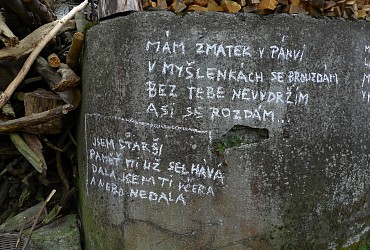 MÁM ZMATEK V PÁNVI
V MYŠLENKÁCH SE BROUZDÁM
BEZ TEBE NEVYDRŽÍM
ASI SE ROZDÁM.
JSEM STARŠÍ
PAMĚŤ MI UŽ SELHÁVÁ
DALA JSEM TI VČERA
ANEBO NEDALA